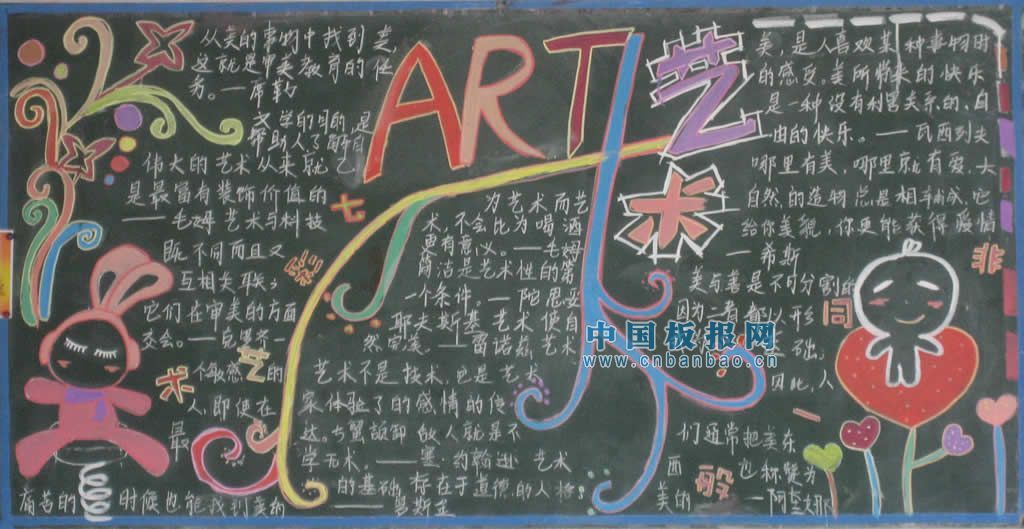 从美的事物中找到美
这就是审美教育的任
务。——席勒
文学的目的,是
帮助人了解自
伟大的艺术从来就
是最富有装饰价值的
——毛姆 艺术与科技
既不同而且又
互相关联;
它们在审美的方面
交会。——
个敏感的
人,即便在
最
痛苦的 时候也能找到美的
ART
艺
术
七
彩
艺
术
为艺术而艺
术,不会比为喝酒
更有意义。——毛姆
简洁是艺术性的第
一个条件。——陀思妥
耶夫斯基 艺术使自
然完美。——雷诺兹 艺术
艺术不是技术,它是艺术
家体验了的感情的传
达。
做人就是不
学无术。——塞·约翰逊 艺术
的基础 存在于道德的人格。
——鲁斯金
美,是人喜欢某种事物时
的感受。美所带来的快乐
是一种没有利害关系的、自
由的快乐。——瓦西列夫
哪里有美,哪里就有爱,大
自然的造物总是相辅成,它
给你美貌,你更能获得爱情
——希斯
美与善是不可分割的
因为二者都以形
基础;
因此,人
们通常把美东
西 也称赞为
美的 ——阿奎那
非
同
一
般
中国板报网
www.cnbanbao.cn